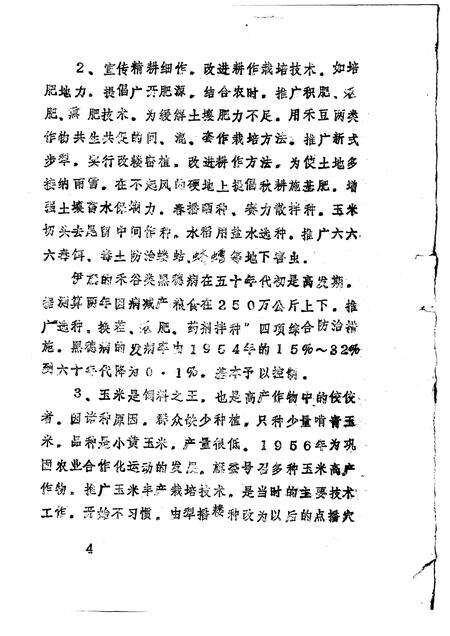 2、宣传精耕细作。改进耕作栽培技术。如培
肥地力。提倡广开肥源。结合农时。推广积肥、沤
肥、 肥技术。为缓解土壤肥力不足。用禾豆两类
作物共生共促的间、混、套作栽培方法。推广新式
步犁。实行改耧密植。改进耕作方法。为使土地多
接纳雨雪。在不起风的硬地上提倡秋耕施基肥。增
强土壤蓄水保墒力。春播晒种、麦力散拌种。玉米
切头去尾留中间作种。水稻用盐水选种。推广六六
六毒饵、毒土防治蝼蛄、蛴螬等地下害虫。
伊 的禾谷类黑穗病在五十年代初是高发期。
据测算两年因病减产粮食在250万公斤上下。推
广选种。换茬、沤肥。药剂拌种”四项综合防治措
施。黑穗病的发病率由1954年的15%~32%
到六十年代降为0·1%。基本予以控制。
3、玉米是饲料之王。也是高产作物中的佼佼
者。因诸种原因。群众缺少种植。只种少量啃青玉
米。品种是小黄玉米。产量很低。1956年为巩
固农业合作化运动的发展。旗委号召多种玉米高产
作物。推广玉米丰产栽培技术。是当时的主要技术
工作。开始不习惯。由犁播耧种改为以后的点播穴
4